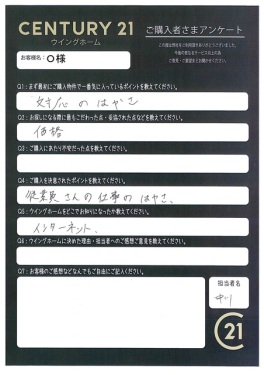 CENTURY 21
ウイングホーム
ご購入者さまアンケート
お客様名：O様
Q1：まず最初にご購入物件で一番気に入っているポイントを教えてください。
対応のはやさ
Q2：お探しになる際に最もこだわった点・妥協された点などを教えてください。
価格
Q3：ご購入にあたり不安だった点を教えてください。
Q4：ご購入を決意されたポイントを教えてください。
従業員さんの仕事のはやさ、
Q5：ウイングホームをどこでお知りになったか教えてください。
インターネット、
Q6：ウイングホームに決めた理由・担当者へのご感想ご意見を教えてください。
Q7：お客様のご感想などなんでもご自由にご記入ください。
担当者名
中川
21